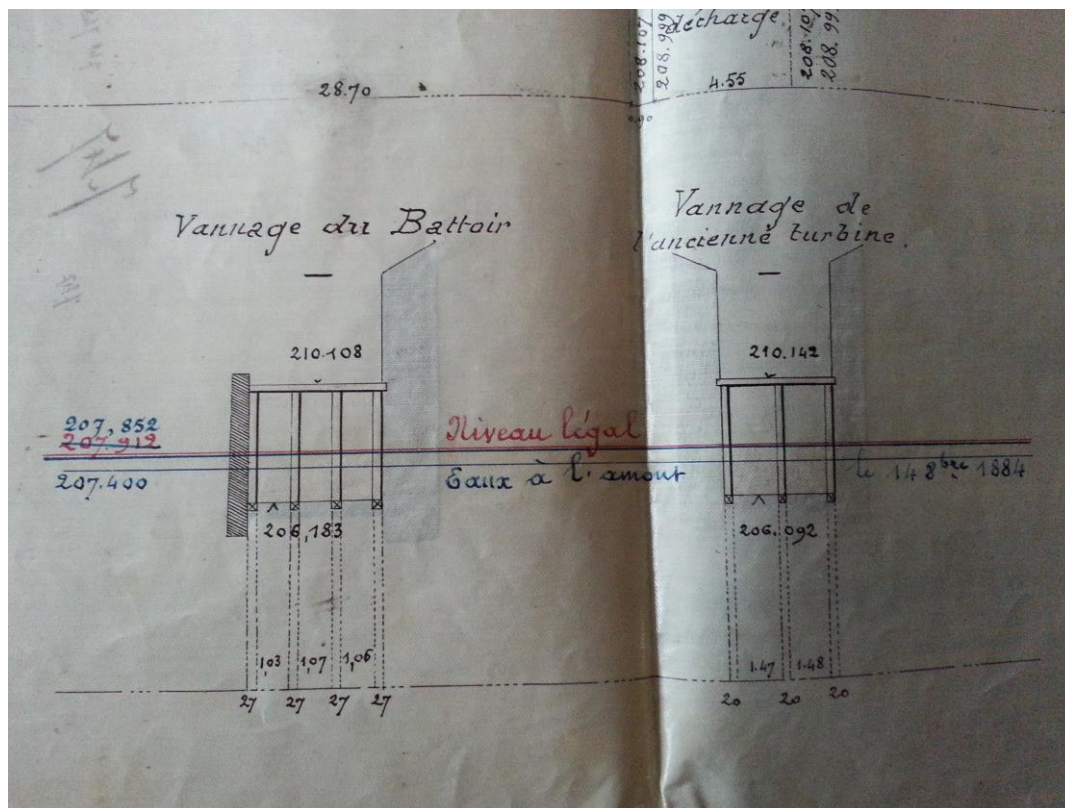 décharge
208.107
208.999
208.107
208.99
28.70
4.55
0.90
Vannage du Battoir
Vannage de
l'ancienne turbine.
210.108
210.142
207,852
207.912
Niveau légal
207.400
Eaux à l'amont
le 14 8bre 1884
206,183
206.092
1,03 1,07 1,06
1.47 1.48
27 27 27 27
20 20 20